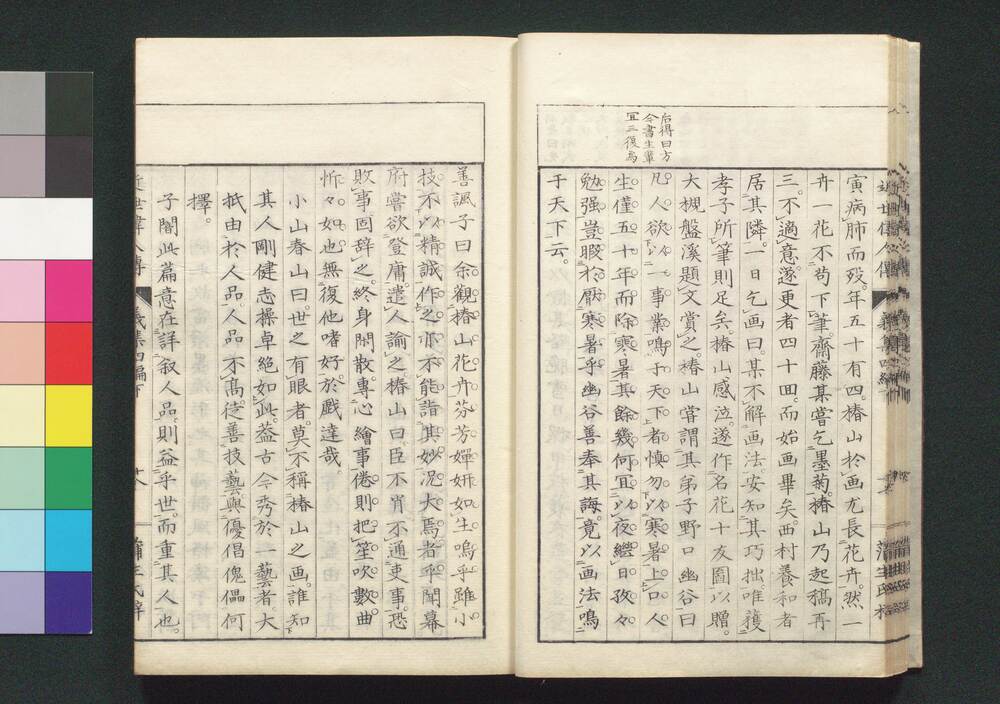 后得曰方
今書生輩
宜三復焉
寅病肺而歿。年五十有四。椿山於画尤長花卉。然一
卉一花不苟下筆。齋藤某嘗乞墨菊。椿山乃起稿再
三。不適意。遂更者四十回。而始画畢矣。西村養和者
居其隣。一日乞画曰。某不解画法。安知其巧拙。唯獲
孝子所筆則足矣。椿山感泣。遂作名花十友圖以贈。
大槻盤溪題文賞之。椿山嘗謂其弟子野口幽谷曰
凡人欲以一事業鳴于天下者慎勿以寒暑上口。人
生僅五十年而除寒暑其餘幾何。宜以夜繼日孜々
勉强。豈暇於厭寒暑乎。幽谷善奉其誨。竟以画法鳴
于天下云。
善諷子曰余觀椿山花卉芬芳嬋妍如生。嗚乎雖小
技不以精誠作之亦不能詣其妙。况大焉者乎。聞幕
府嘗欲登庸。遣人諭之。椿山曰。臣不肖不通吏事。恐
敗事。固辞之。終身閒散。專心繪事。倦則把笙吹數曲
怍々如也。無復他嗜好。於戲達哉。
小山春山曰世之有眼者。莫不稱椿山之画。誰知
其人剛健志操卓絶如此。蓋古今秀於一藝者。大
抵由於人品。人品不高。徒善技藝。與優倡傀儡何
擇。
子闇此篇意在詳叙人品。則益乎世。而重其人也。
近世偉人傳
義集四編下
蒲生氏梓